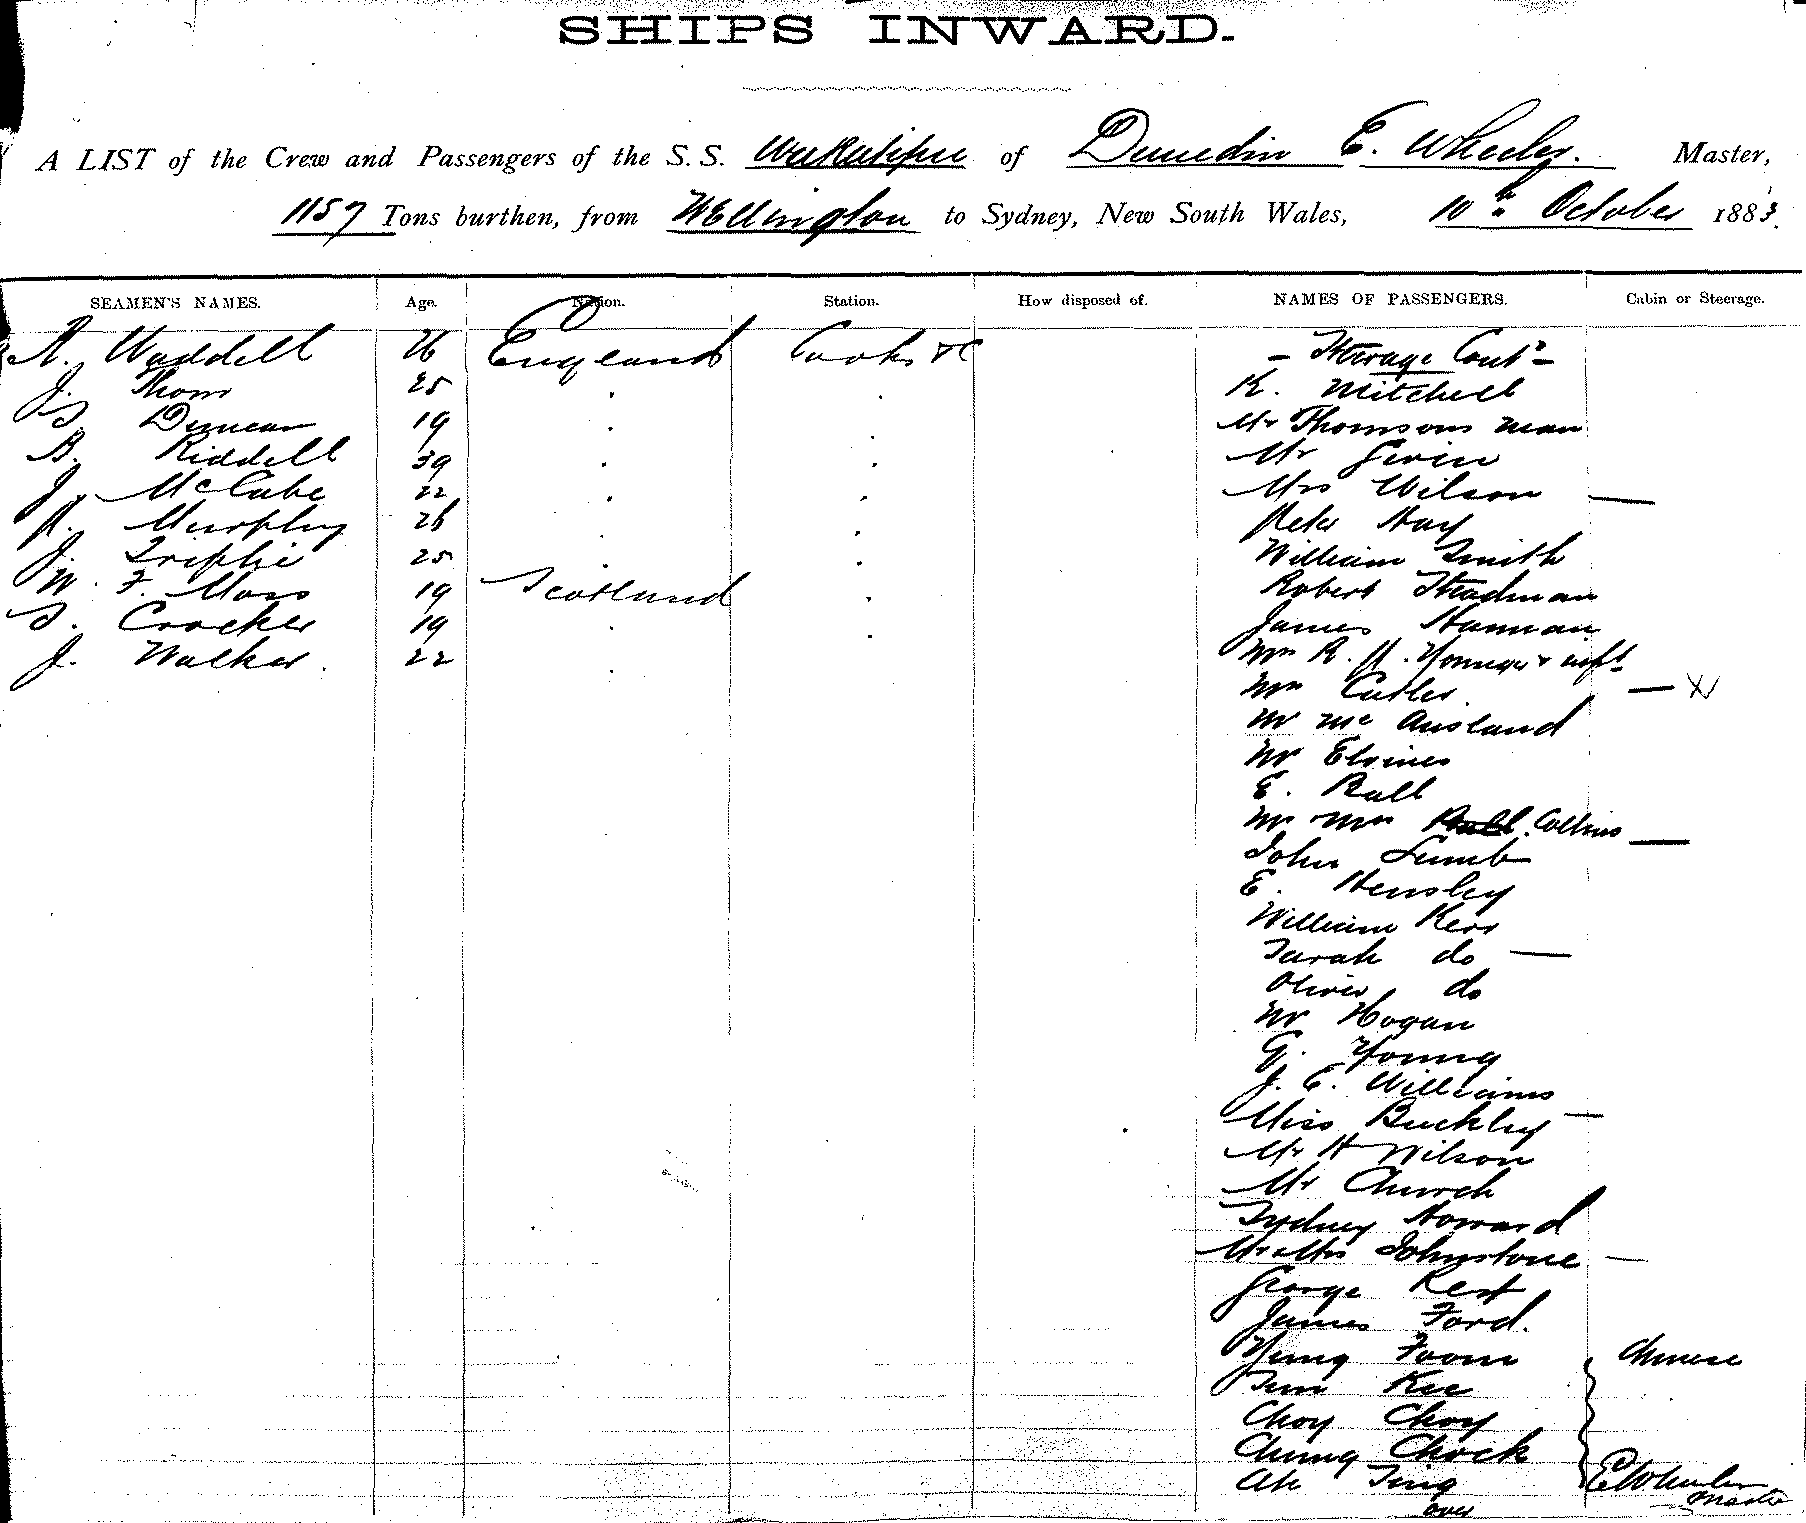 SHIPS INWARD.
A LIST of the Crew and Passengers of the S. S. Wakatipu of Dunedin E. Wheeler. Master,
1157 Tons burthen, from Wellington to Sydney, New South Wales, 10th October 1883.
SEAMEN'S NAMES. Age. Nation. Station. How disposed of. NAMES OF PASSENGERS. Cabin or Steerage.
A. Waddell 26 England Cooks &c - Steerage Contd -
J. Thom 25 . . R. Mitchell
Duncan 19 . . Mr Thomsons man
B. Riddell 39 . . Mr
J. McCabe 22 . . Mrs Wilson —
A. Murphy 26 . . Peter Hay
J. 25 . . William Smith
W. F. Moss 19 Scotland . Robert Steadman
Crocker 19 . . James Hannan
J. Walker. 22 . Mrs R. H. Younger &
Mrs Cutler. — X
Mr Mc Ausland
Mr Elvines
E. Ball
Mr Mrs Collins —
John Lumb
E. Hensley
William Kerr
Sarah do —
Oliver do
Mr Hogan
G. Young
J. C. Williams
Miss Buckley —
Mr H Wilson
Mr Church
Sydney Howard
Mr & Mrs Johnstone —
George
James Ford.
Yung Foom Chinese
Kee
Choy Choy
Chung Chock
Ah E Wheeler
over Master